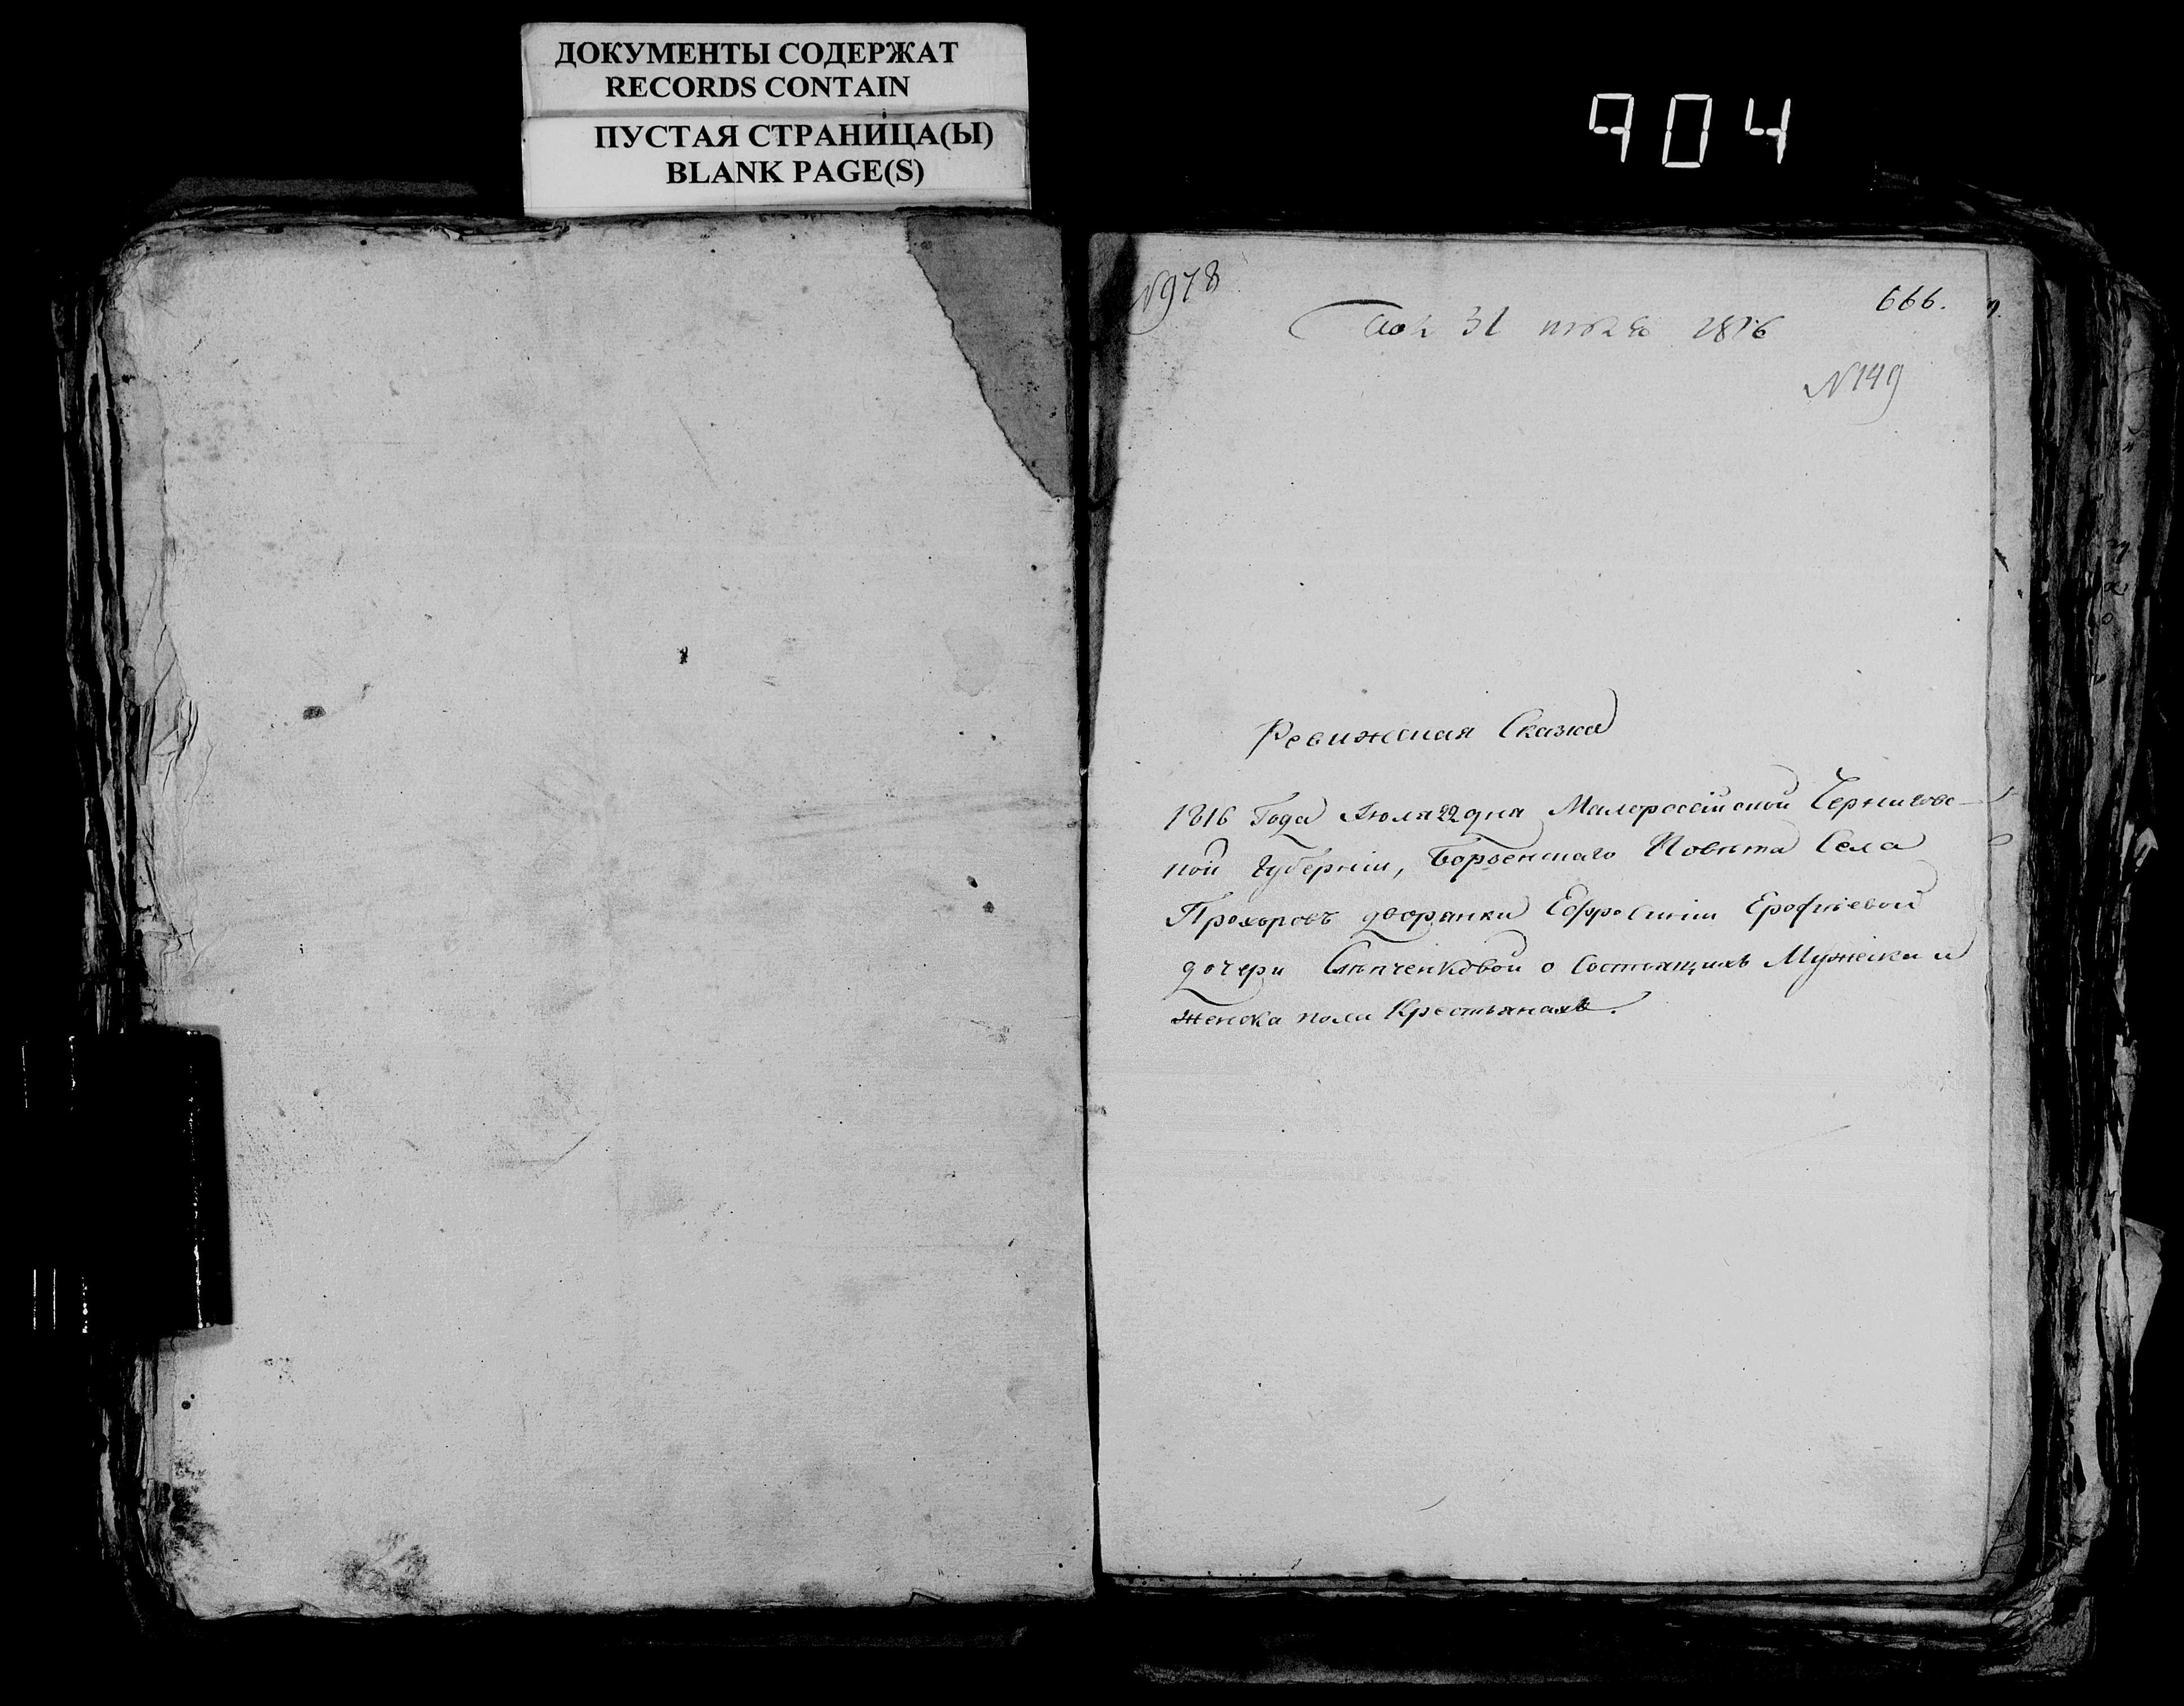 ДОКУМЕНТЫ СОДЕРЖАТ
RECORDS CONTAIN
ПУСТАЯ СТРАНИЦА(Ы)
BLANK PAGE(S)
904
N978
666.
31 1816
N149
Ревижская Сказка
1816 Года Июля 22 дня Малороссийской Черниговс-
кой губернии, Борзенскаго Повѣта Села
Прохоровъ дворянки Ефросинии Ерофѣевой
дочери о Состоящихъ Мужеска и
Женска пола Крестьянахъ.